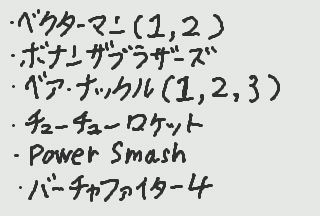 ・ベクターマン(1,2)
・ボナンザブラザーズ
・ベアナックル(1,2,3)
・チューチューロケット
・Power Smash
・バーチャファイター4